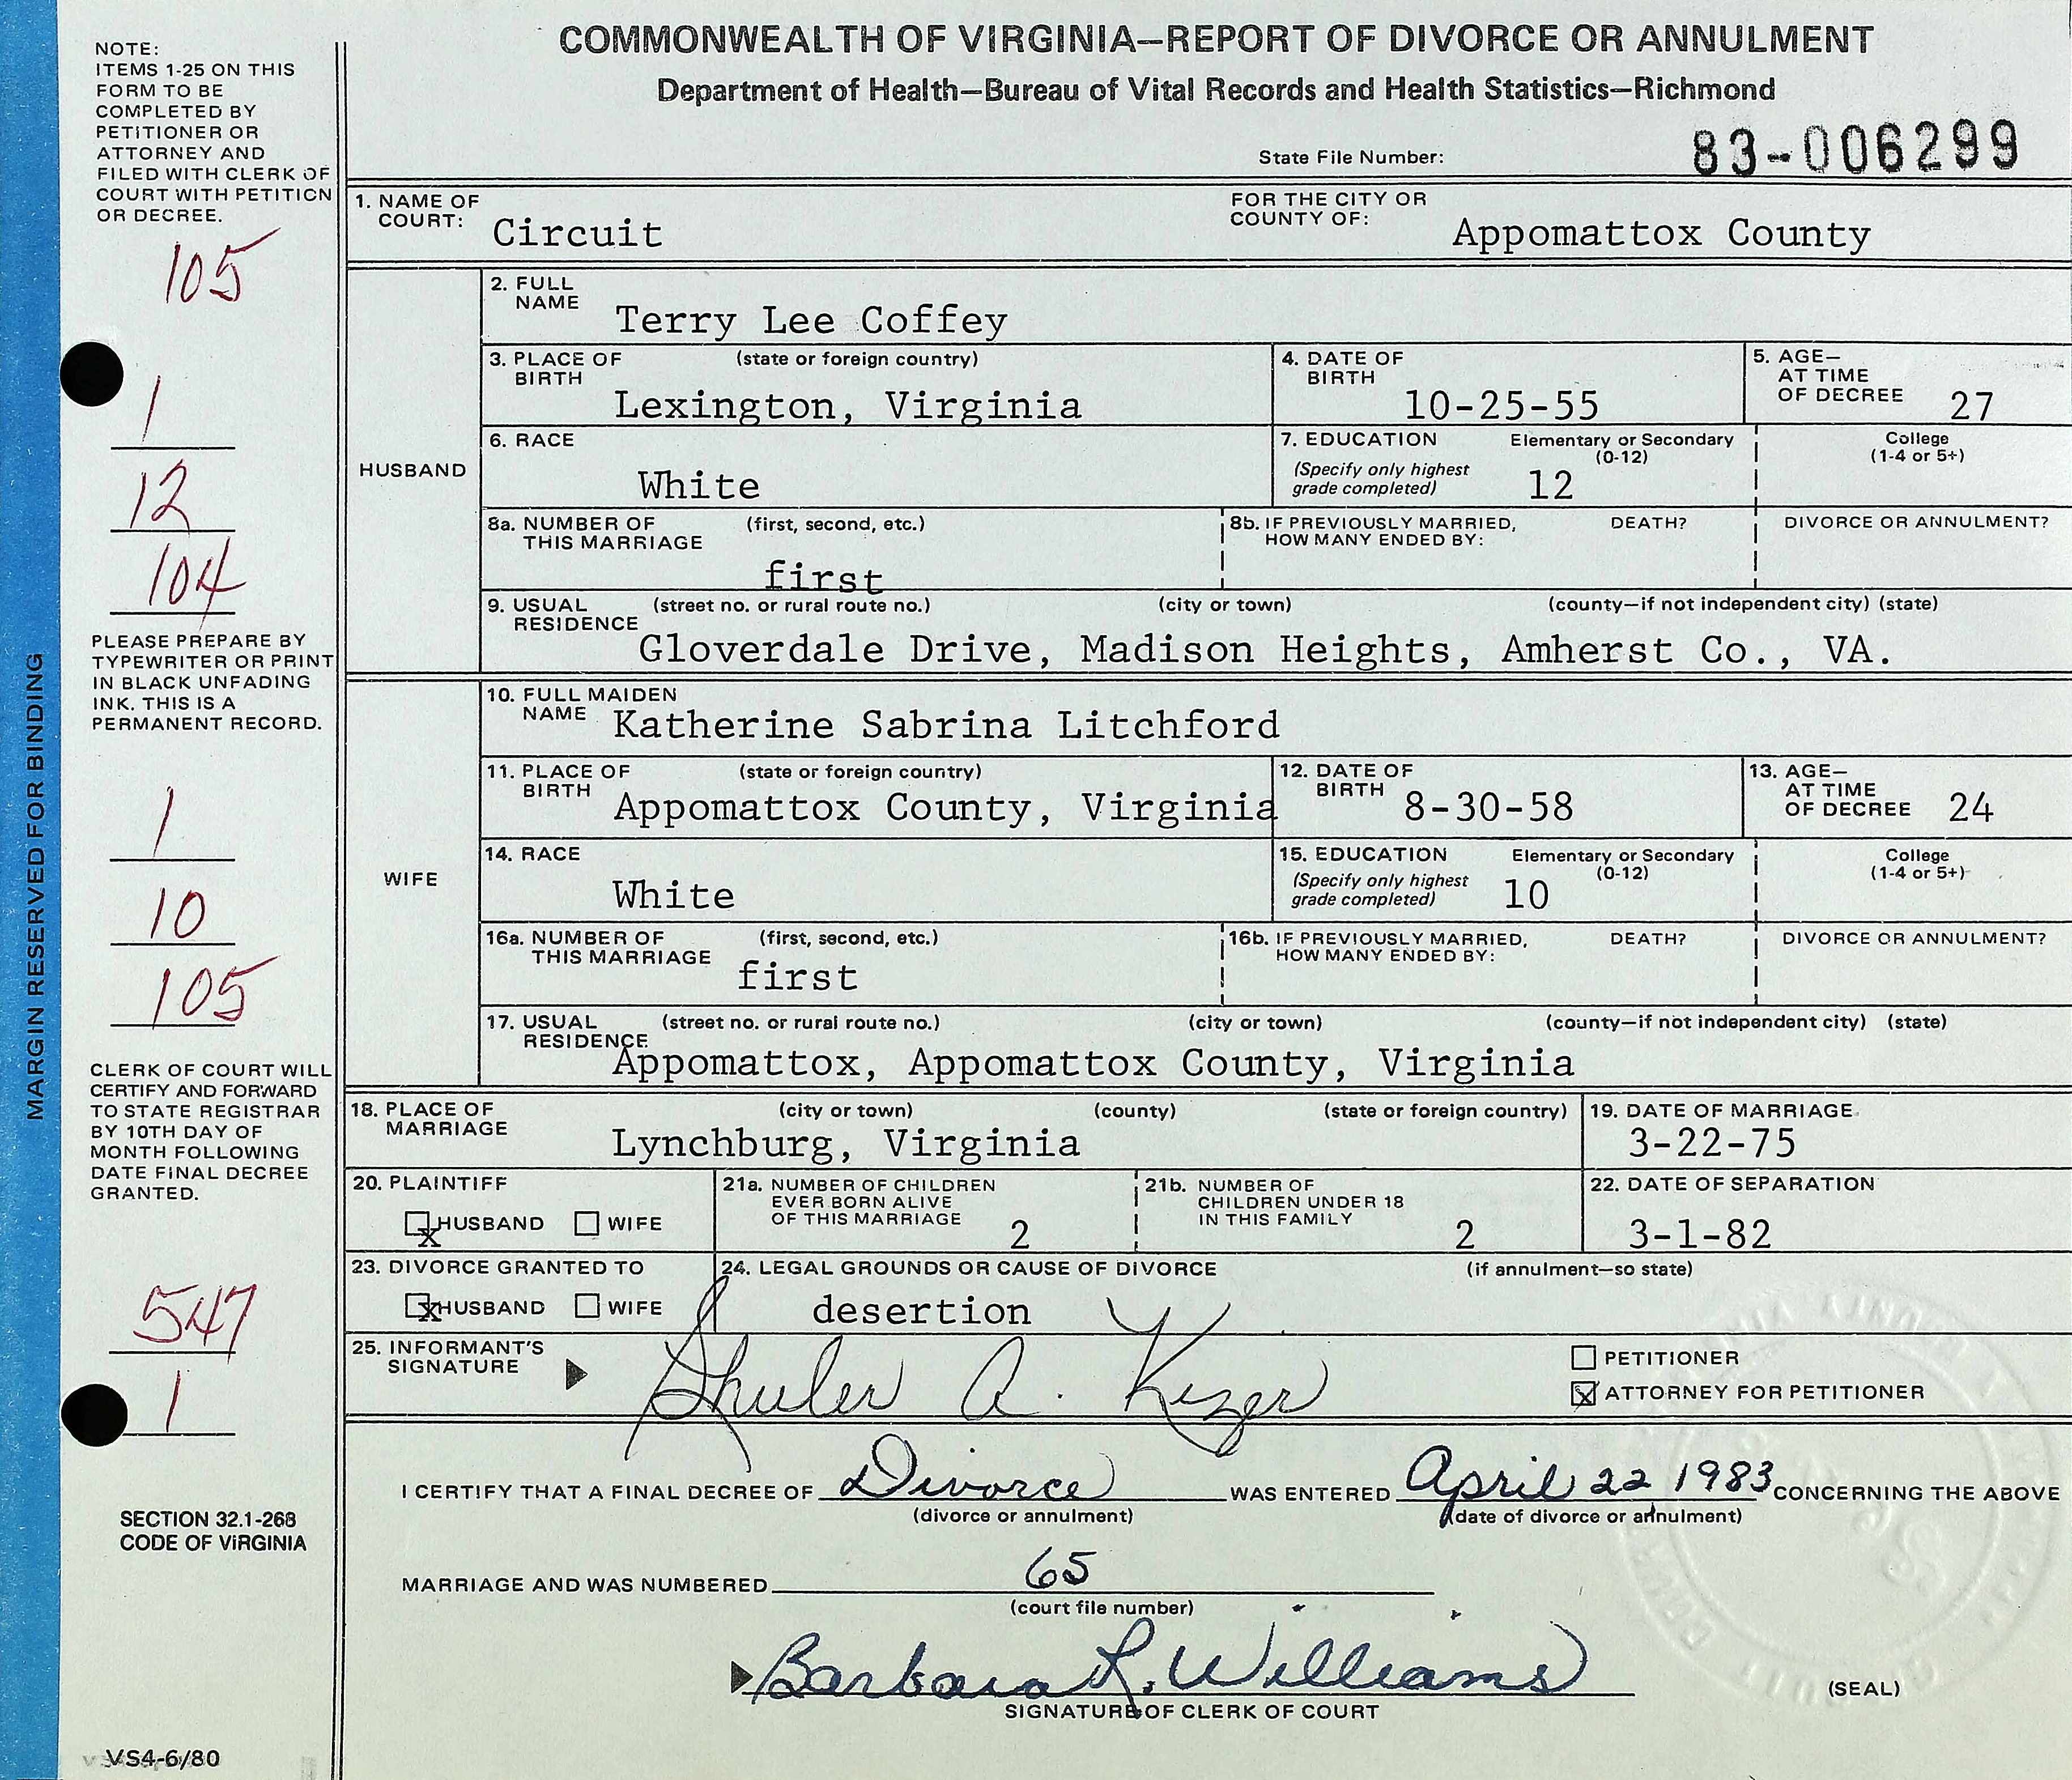 COMMONWEALTH OF VIRGINIA—REPORT OF DIVORCE OR ANNULMENT
Department of Health—Bureau of Vital Records and Health Statistics—Richmond
State File Number: 83-006299
NOTE:
ITEMS 1-25 ON THIS
FORM TO BE
COMPLETED BY
PETITIONER OR
ATTORNEY AND
FILED WITH CLERK OF
COURT WITH PETITION
OR DECREE.
105
1
12
104
PLEASE PREPARE BY
TYPEWRITER OR PRINT
IN BLACK UNFADING
INK. THIS IS A
PERMANENT RECORD.
1
10
105
CLERK OF COURT WILL
CERTIFY AND FORWARD
TO STATE REGISTRAR
BY 10TH DAY OF
MONTH FOLLOWING
DATE FINAL DECREE
GRANTED.
547
1
SECTION 32.1-268
CODE OF VIRGINIA
VS4-6/80
MARGIN RESERVED FOR BINDING
1. NAME OF COURT: Circuit
FOR THE CITY OR COUNTY OF: Appomattox County
HUSBAND
2. FULL NAME Terry Lee Coffey
3. PLACE OF BIRTH (state or foreign country) Lexington, Virginia
4. DATE OF BIRTH 10-25-55
5. AGE— AT TIME OF DECREE 27
6. RACE White
7. EDUCATION (Specify only highest grade completed) Elementary or Secondary (0-12) 12
College (1-4 or 5+)
8a. NUMBER OF THIS MARRIAGE (first, second, etc.) first
8b. IF PREVIOUSLY MARRIED, HOW MANY ENDED BY: DEATH? DIVORCE OR ANNULMENT?
9. USUAL RESIDENCE (street no. or rural route no.) (city or town) (county—if not independent city) (state)
Gloverdale Drive, Madison Heights, Amherst Co., VA.
WIFE
10. FULL MAIDEN NAME Katherine Sabrina Litchford
11. PLACE OF BIRTH (state or foreign country) Appomattox County, Virginia
12. DATE OF BIRTH 8-30-58
13. AGE— AT TIME OF DECREE 24
14. RACE White
15. EDUCATION (Specify only highest grade completed) Elementary or Secondary (0-12) 10
College (1-4 or 5+)
16a. NUMBER OF THIS MARRIAGE (first, second, etc.) first
16b. IF PREVIOUSLY MARRIED, HOW MANY ENDED BY: DEATH? DIVORCE OR ANNULMENT?
17. USUAL RESIDENCE (street no. or rural route no.) (city or town) (county—if not independent city) (state)
Appomattox, Appomattox County, Virginia
18. PLACE OF MARRIAGE (city or town) (county) (state or foreign country)
Lynchburg, Virginia
19. DATE OF MARRIAGE 3-22-75
20. PLAINTIFF x HUSBAND WIFE
21a. NUMBER OF CHILDREN EVER BORN ALIVE OF THIS MARRIAGE 2
21b. NUMBER OF CHILDREN UNDER 18 IN THIS FAMILY 2
22. DATE OF SEPARATION 3-1-82
23. DIVORCE GRANTED TO x HUSBAND WIFE
24. LEGAL GROUNDS OR CAUSE OF DIVORCE (if annulment—so state)
desertion
25. INFORMANT'S SIGNATURE Shuler A. Kizer
PETITIONER
x ATTORNEY FOR PETITIONER
I CERTIFY THAT A FINAL DECREE OF Divorce WAS ENTERED April 22 1983 CONCERNING THE ABOVE
(divorce or annulment) (date of divorce or annulment)
MARRIAGE AND WAS NUMBERED 65
(court file number)
Barbara R. Williams
SIGNATURE OF CLERK OF COURT
(SEAL)